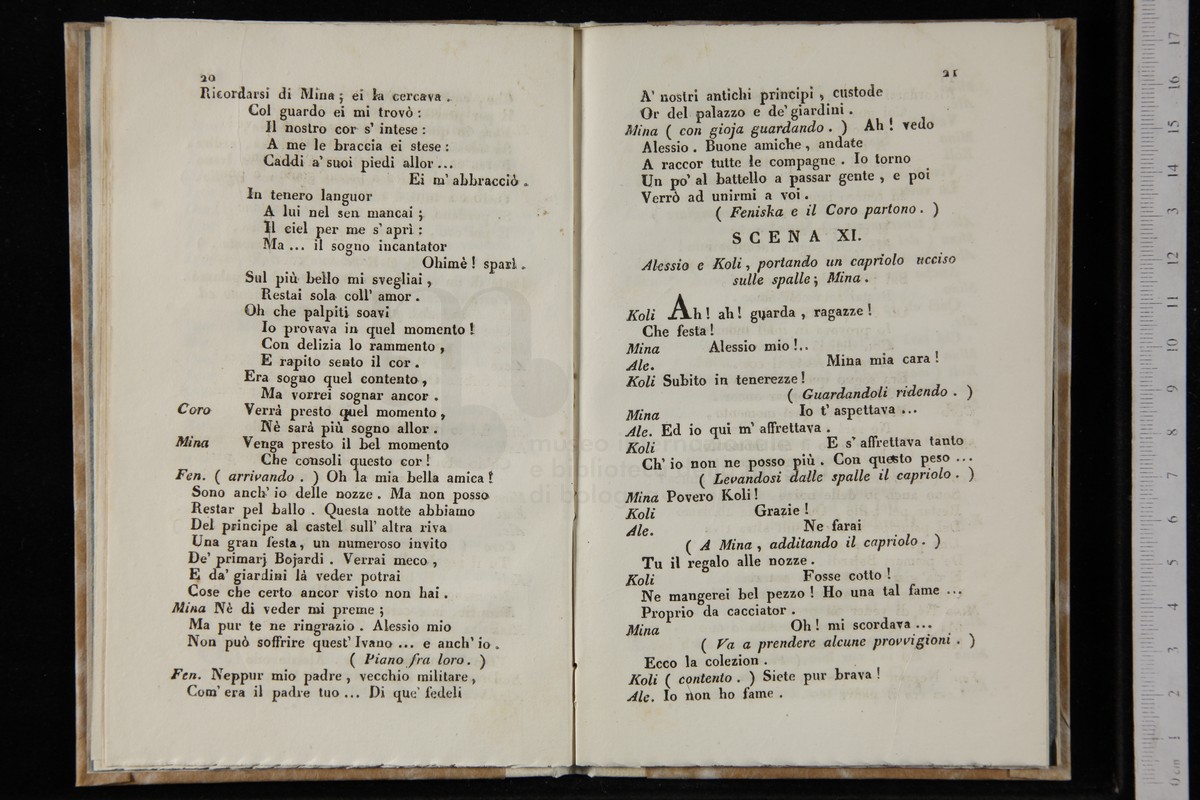 20
Ricordarsi di Mina ; ei la cercava .
Col guardo ei mi trovò :
Il nostro cor s' intese :
A me le braccia ei stese :
Caddi a' suoi piedi allor ...
Ei m' abbracciò .
In tenero languor
A lui nel sen mancai ;
Il ciel per me s' aprì :
Ma ... il sogno incantator
Ohimè ! sparì .
Sul più bello mi svegliai ,
Restai sola coll' amor .
Oh che palpiti soavi
Io provava in quel momento !
Con delizia lo rammento ,
E rapito sento il cor .
Era sogno quel contento ,
Ma vorrei sognar ancor .
Coro Verrà presto quel momento ,
Nè sarà più sogno allor .
Mina Venga presto il bel momento
Che consoli questo cor !
Fen. ( arrivando . ) Oh la mia bella amica !
Sono anch' io delle nozze . Ma non posso
Restar pel ballo . Questa notte abbiamo
Del principe al castel sull' altra riva
Una gran festa, un numeroso invito
De' primarj Bojardi . Verrai meco ,
E da' giardini là veder potrai
Cose che certo ancor visto non hai .
Mina Nè di veder mi preme ;
Ma pur te ne ringrazio . Alessio mio
Non può soffrire quest' Ivano ... e anch' io .
( Piano fra loro . )
Fen. Neppur mio padre , vecchio militare ,
Com' era il padre tuo ... Di que' fedeli
21
A' nostri antichi principi , custode
Or del palazzo e de' giardini .
Mina ( con gioja guardando . ) Ah ! vedo
Alessio . Buone amiche , andate
A raccor tutte le compagne . Io torno
Un po' al battello a passar gente , e poi
Verrò ad unirmi a voi .
( Feniska e il Coro partono . )
SCENA XI.
Alessio e Koli , portando un capriolo ucciso
sulle spalle ; Mina .
Koli Ah ! ah ! guarda , ragazze !
Che festa !
Mina Alessio mio !..
Ale. Mina mia cara !
Koli Subito in tenerezze !
( Guardandoli ridendo . )
Mina Io t' aspettava ...
Ale. Ed io qui m' affrettava .
Koli E s' affrettava tanto
Ch' io non ne posso più . Con questo peso ...
( Levandosi dalle spalle il capriolo . )
Mina Povero Koli !
Koli Grazie !
Ale. Ne farai
( A Mina , additando il capriolo . )
Tu il regalo alle nozze .
Koli Fosse cotto !
Ne mangerei bel pezzo ! Ho una tal fame ...
Proprio da cacciator .
Mina Oh ! mi scordava ...
( Va a prendere alcune provvigioni . )
Ecco la colezion .
Koli ( contento . ) Siete pur brava !
Ale. Io non ho fame .